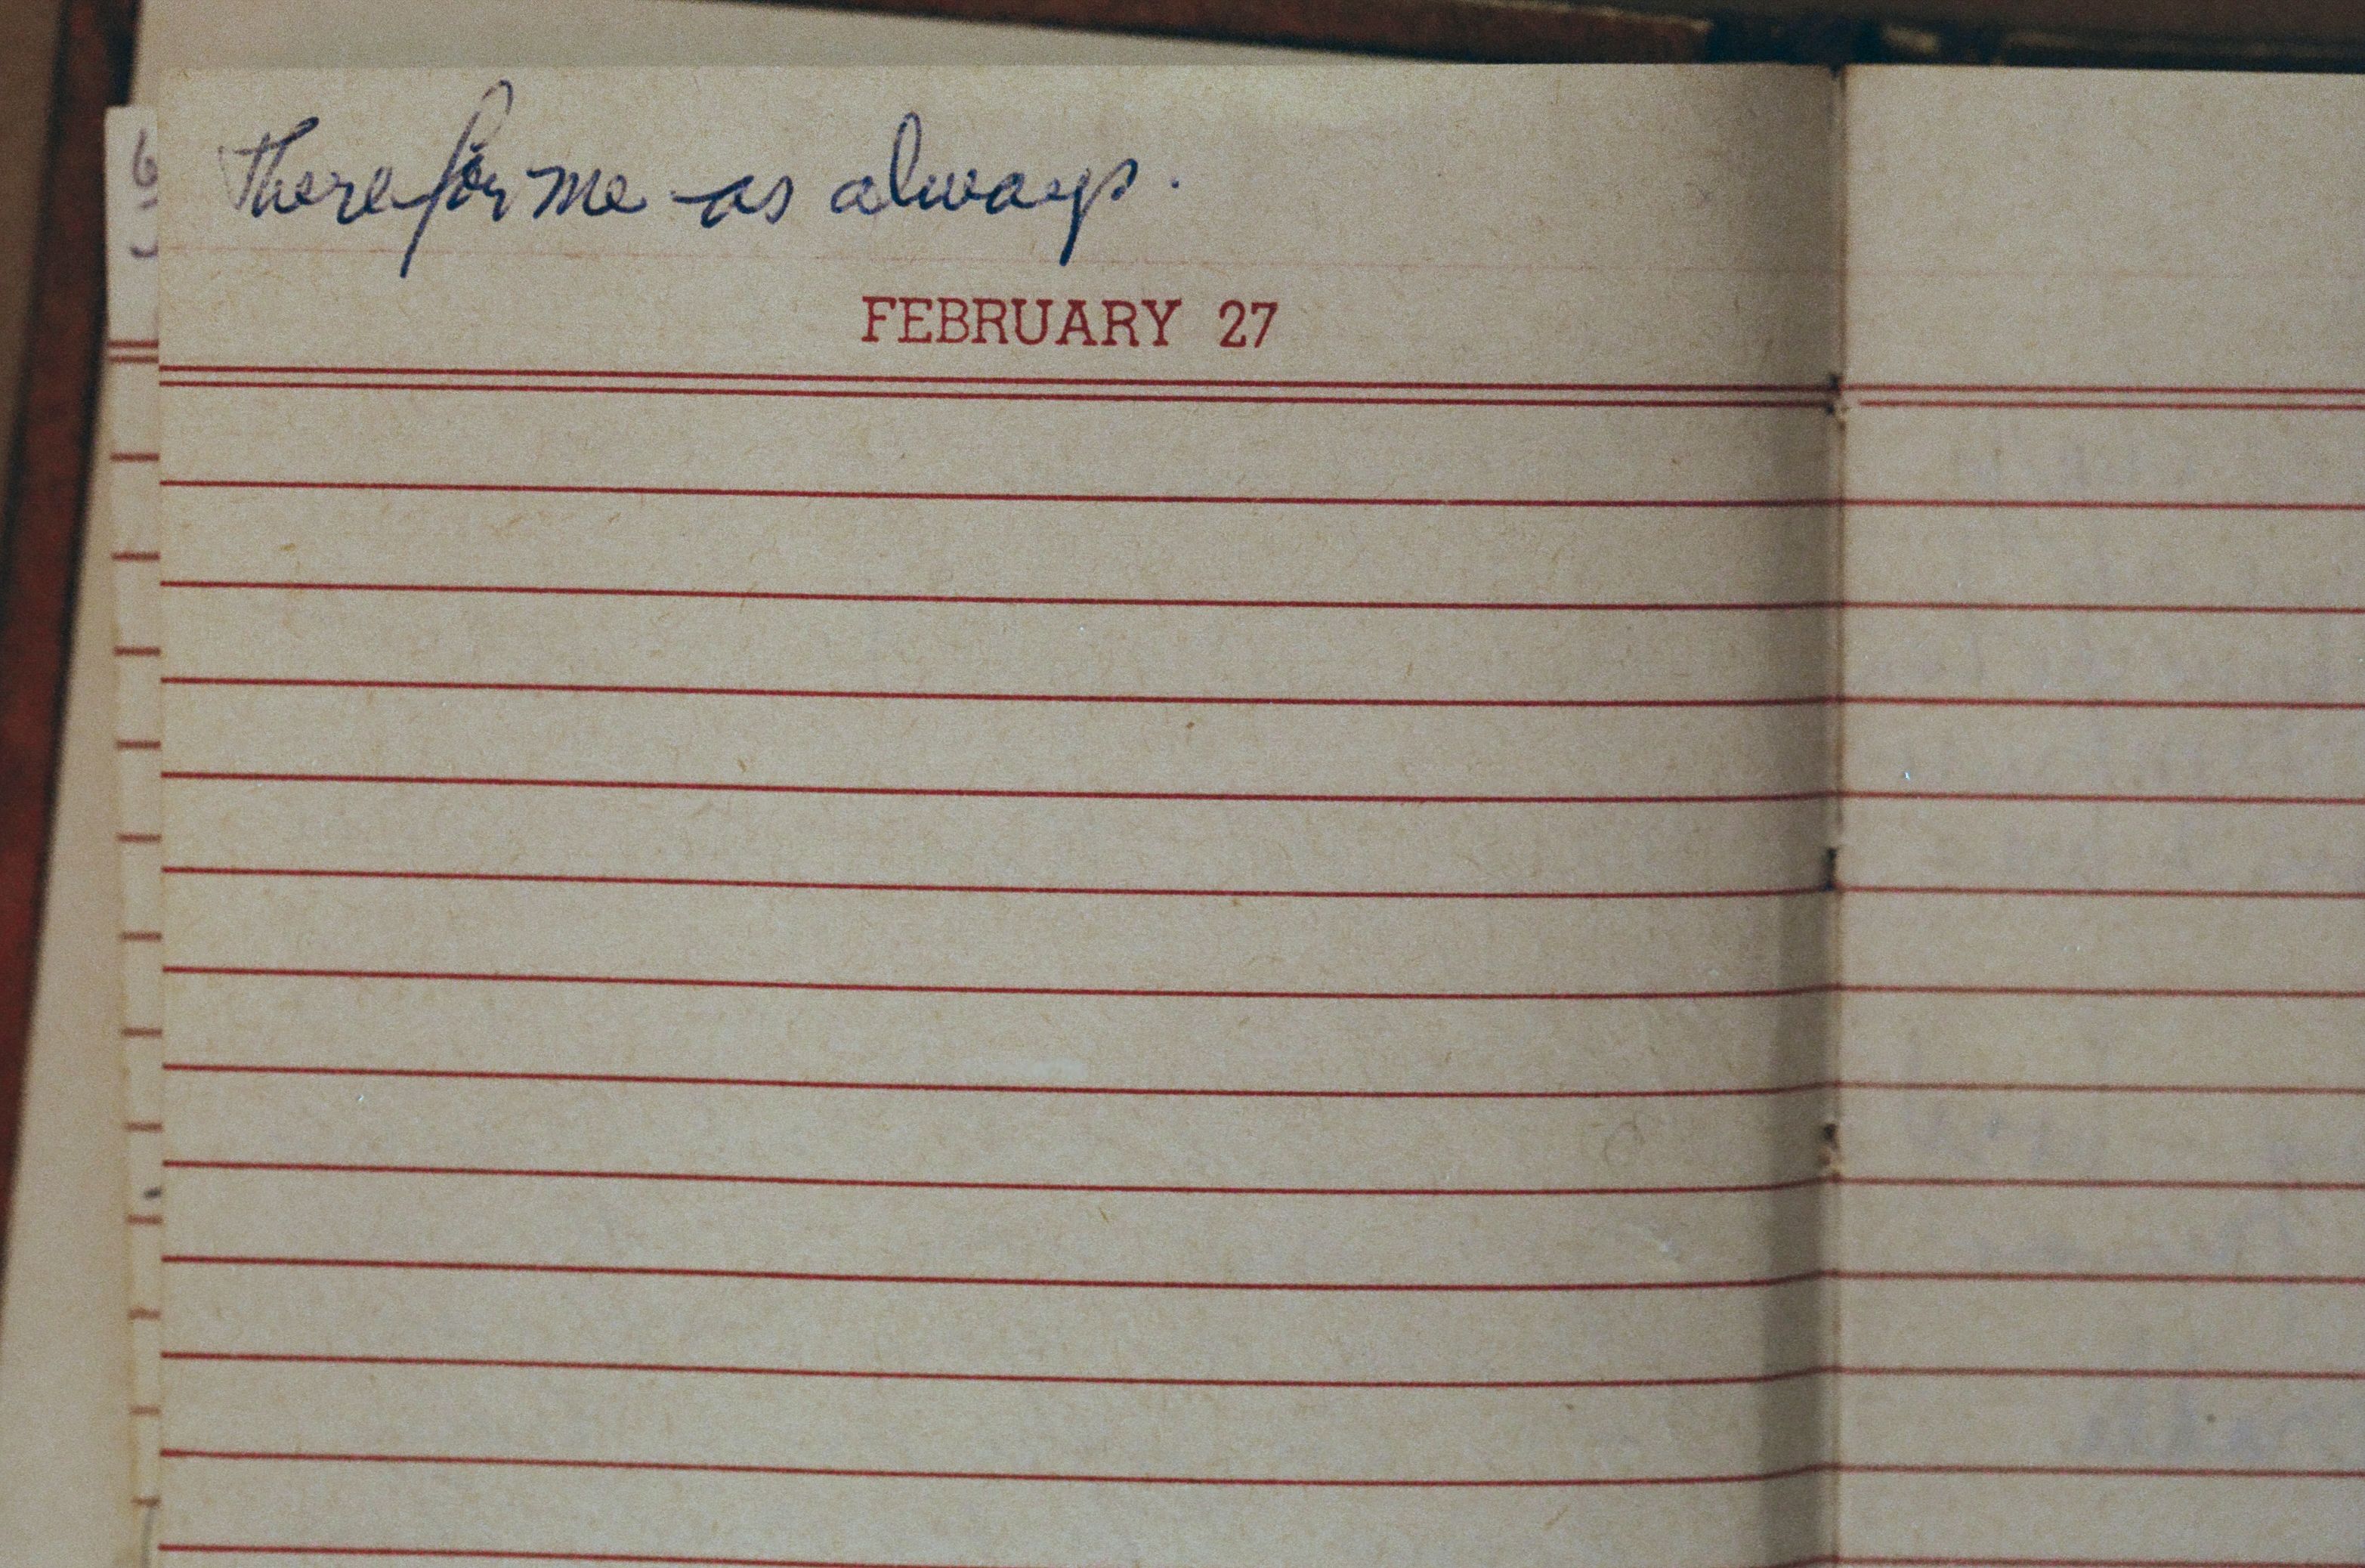 there for me as always.
FEBRUARY 27